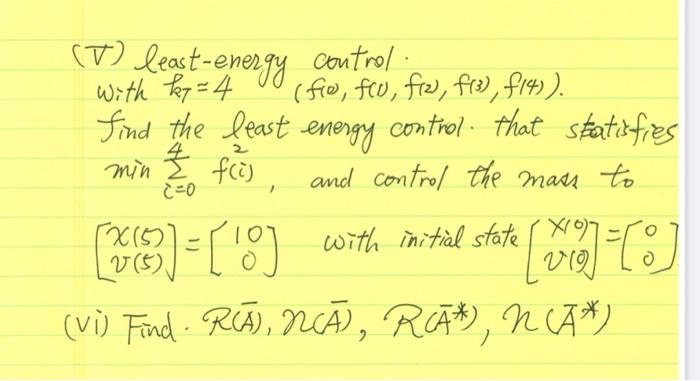 (V) least-energy control.
with k_T = 4 (f(0), f(1), f(2), f(3), f(4)).
find the least energy control. that statisfies
min \sum_{i=0}^{4} f(i)^2, and control the mass to
[x(5) v(5)] = [10 0] with initial state [x(0) v(0)] = [0 0]
(Vi) Find. R(Ā), n(Ā), R(Ā*), n(Ā*)